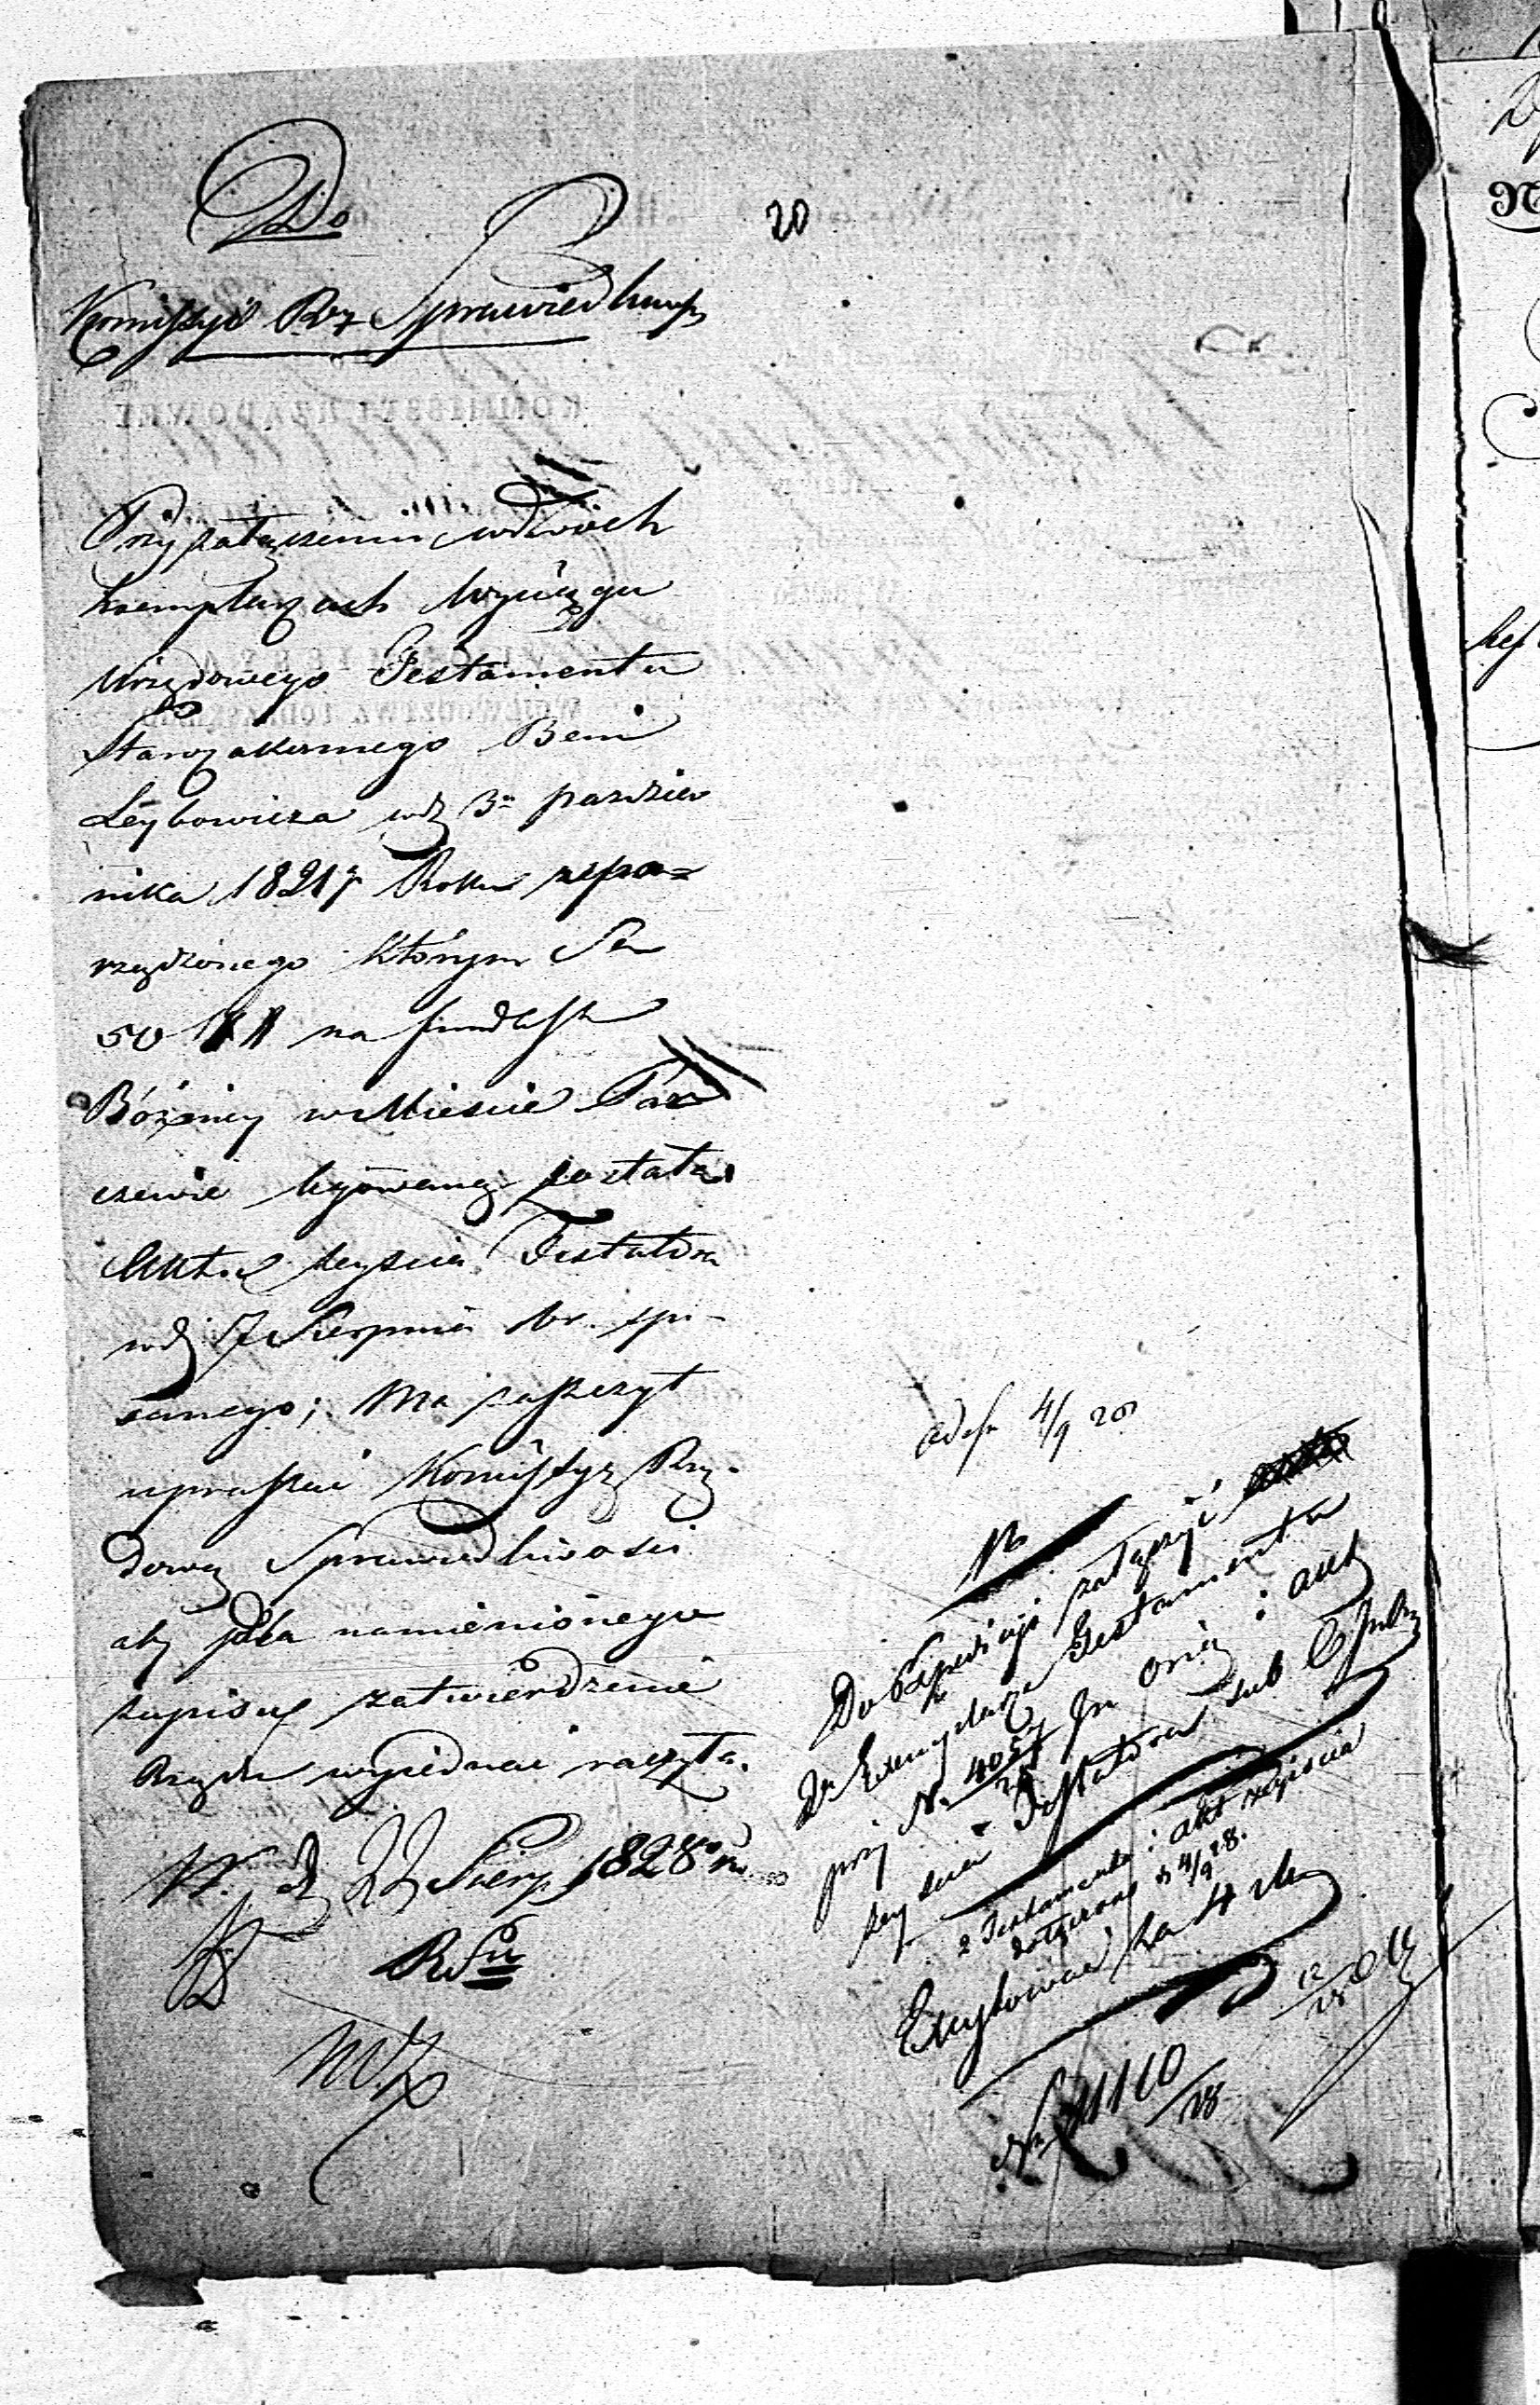 20
Do
Komissyi Rz Sprawiedliwości
Przy załączeniu w dwóch
Exemplarzach Wyciągu
Urzędowego Testamentu
Starozakonnego Beni
Leybowicza w d. 3 pazdzier
nika 1821 Roku zapo=
rządzonego którym Su
50 na fundusz
Bóźnicy w Mieście Par
czewie legowaną została
Aktu zeyścia Testatora
w d. 7 Sierpnia br. spi-
sanego; Ma zaszczyt
upraszać Komissyą Rzą-
dową Sprawiedliwości
aby dla namienionego
zapisu zatwierdzenie
Rządu wyjednać raczyła.
W. d. 22 Sierp. 1828 r.
adesp 4/9 28
Nb
Do Expedycyi załączyć
2 Exemplarze Testamentu
przy N. in orig i akt
zeyścia Testatora sub
2 Testamenta i akt zeyścia
dołączone d 4/9 28.
Exeyowane za
12/28
N 11110/28